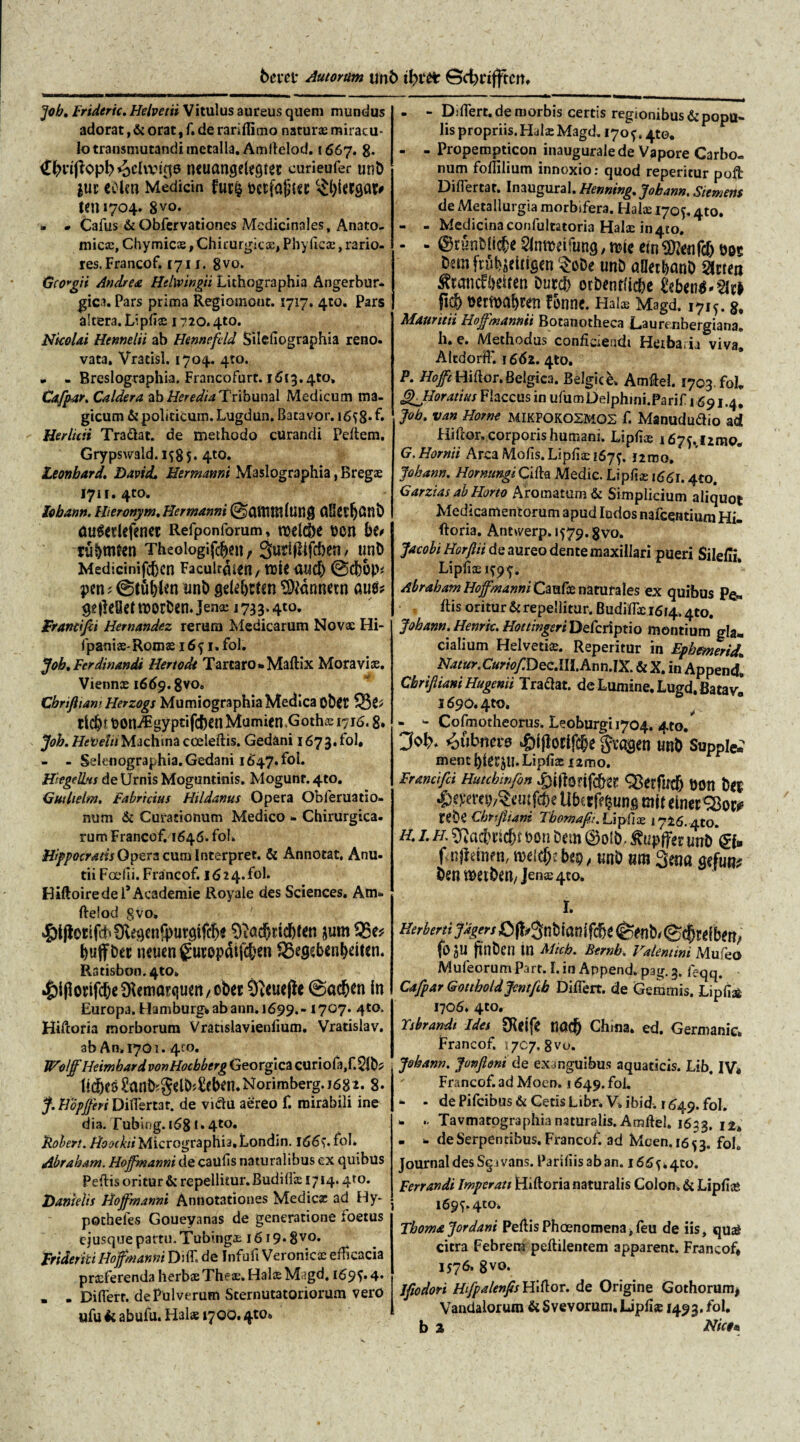 derer Autorum und ihrer Schrifften.
Joh. Frideric. Helvetii Vitulus aureus quem mundus
adorat, & orat, f. de rarissimo naturæ miracu-
lo transmutandi metalla. Amstelod. 1667. 8.
Christoph Helwigs neuangelegter curieuser und
zur edlen Medicin kurtz verfaßter Thiergar-
ten 1704. 8vo.
- - Casus & Observationes Medicinales, Anato-
micæ, Chymicæ, Chirurgicæ, Physicæ, rario-
res. Francof. 1711. 8vo.
Georgii Andreæ Helwingii Lithographia Angerbur-
gica. Pars prima Regiomont. 1717. 4to. Pars
altera. Lipsiæ 1720. 4to.
Nicolai Hennelii ab Hennefeld Silesiographia reno-
vata, Vratisl. 1704. 4to.
- - Breslographia. Francofurt. 1613. 4to.
Caspar. Caldera ab Heredia Tribunal Medicum ma-
gicum & politicum. Lugdun. Batavor. 1658. f.
Herlicii Tractat. de methodo curandi Pestem.
Grypswald. 1585. 4to.
Leonhard. David. Hermanni Maslographia, Bregæ
1711. 4to.
Iohann. Hieronym. Hermanni Sammlung allerhand
auserlesener Responsorum, welche von be-
rühmten Theologischen, Juristischen, und
Medicinischen Facultäten, wie auch Schöp-
pen-Stühlen und gelehrten Männern aus-
gestellet worden. Jenæ 1733. 4to.
Francisci Hernandez rerum Medicarum Novæ Hi-
spaniæ-Romæ 1651. fol.
Joh. Ferdinandi Hertodt Tartaro-Mastix Moraviæ.
Viennæ 1669. 8vo.
Christiani Herzogs Mumiographia Medica oder Be-
richt von Ægyptischen Mumien. Gothæ 1716. 8.
Joh. Hevelii Machina coelestis. Gedani 1673. fol.
- - Selenographia. Gedani 1647. fol.
Hiegellus de Urnis Moguntinis. Mogunt. 4to.
Guilhelm. Fabricius Hildanus Opera Observatio-
num & Curationum Medico - Chirurgica-
rum Francof. 1646. fol.
Hippocratis Opera cum Interpret. & Annotat. Anu-
tii Foesii. Francof. 1624. fol.
Histoire de l'Academie Royale des Sciences. Am-
stelod 8vo.
Historisch-Regenspurgische Nachrichten zum Be-
huff der neuen Europäischen Begebenheiten.
Ratisbon. 4to.
Historische Remarquen, oder Neueste Sachen in
Europa. Hamburg. ab ann. 1699. - 1707. 4to.
Historia morborum Vratislaviensium. Vratislav.
ab An. 1701. 4to.
Wolff Heimhard von Hochberg Georgica curiosa, f. Adb-
liches Land-Feld-Leben. Norimberg. 1682. 8.
J. Höpfferi Dissertat. de victu aëreo f. mirabili ine
dia. Tubing. 1681. 4to.
Robert. Hoockii Micrographia. Londin. 1665. fol.
Abraham. Hoffmanni de causis naturalibus ex quibus
Pestis oritur & repellitur. Budissæ 1714. 4to.
Danielis Hoffmanni Annotationes Medicæ ad Hy-
potheses Goueyanas de generatione foetus
ejusque partu. Tubingæ 1619. 8vo.
Friderici Hoffmanni Diss. de Infusi Veronicæ efficacia
præferenda herbæ Theæ. Halæ Magd. 1695. 4.
- - Dissert. de Pulverum Sternutatoriorum vero
usu & abusu. Halæ 1700. 4to.
- - Dissert. de morbis certis regionibus & popu-
lis propriis. Halæ Magd. 1705. 4to.
- - Propempticon inaugurale de Vapore Carbo-
num fossilium innoxio: quod reperitur post
Dissertat. Inaugural. Henning. Johann. Siemens
de Metallurgia morbifera. Halæ 1705. 4to.
- - Medicina consultatoria Halæ in 4to.
- - Gründliche Anweisung, wie ein Mensch vor
dem frühzeitigen Tode und allerhand Arten
Kranckheiten durch ordentliche Lebens-Art
sich verwahren könne. Halæ Magd. 1715. 8.
Mauritii Hoffmannii Botanotheca Laurenbergiana.
h. e. Methodus conficiendi Herbaria viva.
Altdorff. 1662. 4to.
P. Hoffs Histor. Belgica. Belgicè. Amstel. 1703. fol.
Q. Horatius Flaccus in usum Delphini. Paris. 1691. 4.
Joh. van Horne ΜΙΚΡΟΚΟΣΜΟΣ f. Manuductio ad
Histor. corporis humani. Lipsiæ 1675. 12mo.
G. Hornii Arca Mosis. Lipsiæ 1675. 12mo.
Johann. Hornungi Cista Medic. Lipsiæ 1661. 4to.
Garzias ab Horto Aromatum & Simplicium aliquot
Medicamentorum apud Indos nascentium Hi-
storia. Antwerp. 1579. 8vo.
Jacobi Horstii de aureo dente maxillari pueri Silesii.
Lipsiæ 1595.
Abraham Hoffmanni Causæ naturales ex quibus Pe-
stis oritur & repellitur. Budissæ 1614. 4to.
Johann. Henric. Hottingeri Descriptio montium gla-
cialium Helvetiæ. Reperitur in Ephemerid.
Natur. Curios. Dec. III. Ann. IX. & X. in Append.
Christiani Hugenii Tractat. de Lumine. Lugd. Batav.
1690. 4to.
- - Cosmotheorus. Leoburgi 1704. 4to.
Joh. Hübners Historische Fragen und Supple-
ment hierzu. Lipsiæ 12mo.
Francisci Hutchinson Historischer Versuch von der
Hexerey, Teutsche Ubersetzung mit einer Vor-
rede Christiani Thomasii. Lipsiæ 1726. 4to.
H. I. H. Nachricht von dem Gold- Kupffer und Ei-
sensteinen, welche bey, und um Jena gefun-
den werden, Jenæ 4to.
I.
Herberti Jägers Ost-Indianische Send-Schreiben,
so zu finden in Mich. Bernh. Valentini Museo
Museorum Part. I. in Append. pag. 3. seqq.
Caspar Gotthold Jentsch Dissert. de Gemmis. Lipsiæ
1706. 4to.
Tsbrandt Ides Reise nach China. ed. Germanic.
Francof. 1707. 8vo.
Johann. Jonstoni de exanguibus aquaticis. Lib. IV.
Francof. ad Moen. 1649. fol.
- - de Piscibus & Cetis Libr. V. ibid. 1649. fol.
- - Tavmatographia naturalis. Amstel. 1633. 12.
- - de Serpentibus. Francof. ad Moen. 1653. fol.
Journal des Sçavans. Parisiis ab an. 1665. 4to.
Ferrandi Imperati Historia naturalis Colon. & Lipsiæ
1695. 4to.
Thomæ Jordani Pestis Phoenomena, seu de iis, quæ
citra Febrem pestilentem apparent. Francof.
1576. 8vo.
Isiodori Hispalensis Histor. de Origine Gothorum,
Vandalorum & Svevorum. Lipsiæ 1493. fol.
b 2
Nico-